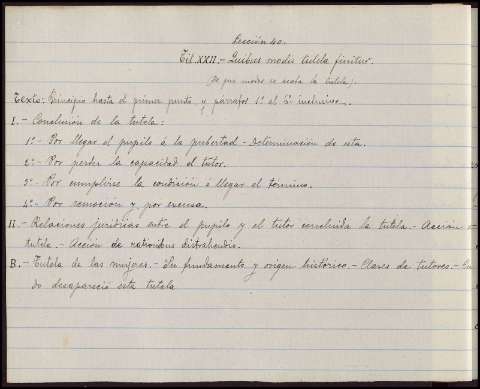 Lección 40.
Tit. XXII.- Quibus modis tutela finitur.
(De que modos se acaba la tutela).
Texto: Principio hasta el primer punto, y párrafos 1º al 6º inclusives.
I.- Conclusión de la tutela:
1º- Por llegar el pupilo á la pubertad - Determinación de esta.
2º- Por perder la capacidad el tutor.
3º- Por cumplirse la condición ó llegar el término.
4º- Por remoción y por excusa.
II.- Relaciones jurídicas entre el pupilo y el tutor concluida la tutela.- Acción
tutela.- Acción de rationibus distrahendis.
B.- Tutela de las mujeres.- Su fundamento y origen histórico.- Clases de tutores.-
do desapareció esta tutela